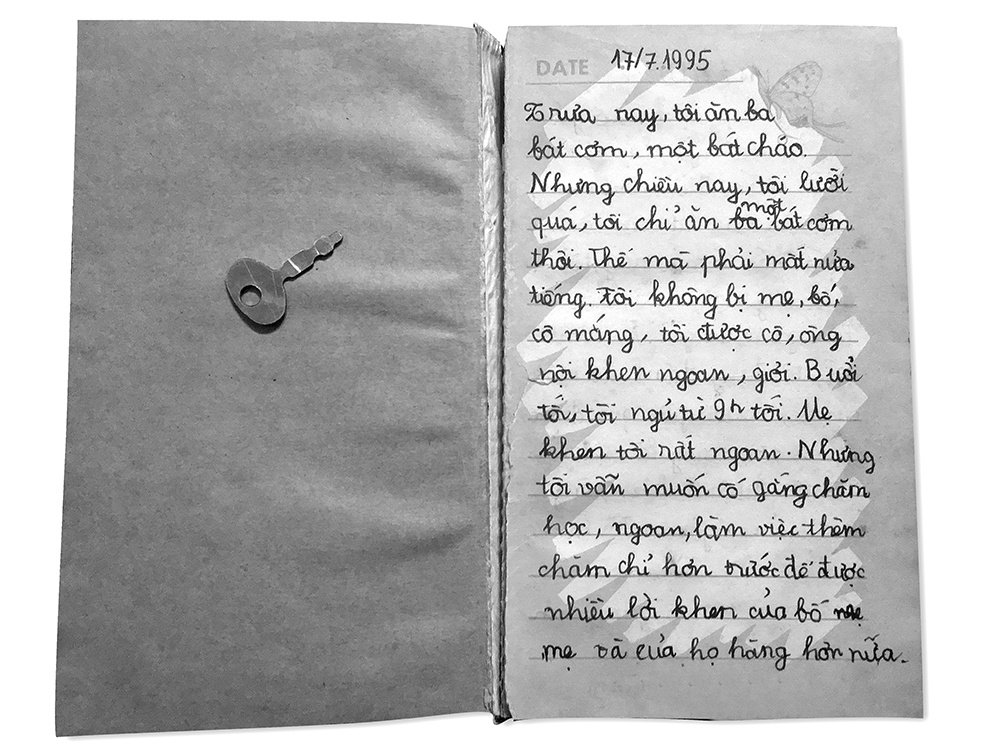 DATE 17/7.1995
Trưa nay, tôi ăn ba
bát cơm, một bát cháo.
Nhưng chiều nay, tôi lười
quá, tôi chỉ ăn ba một bát cơm
thôi. Thế mà phải mất nửa
tiếng. Tôi không bị mẹ, bố,
cô mắng, tôi được cô, ông
nội khen ngoan, giỏi. Buổi
tối, tôi ngủ từ 9h tối. Mẹ
khen tôi rất ngoan. Nhưng
tôi vẫn muốn cố gắng chăm
học, ngoan, làm việc thêm
chăm chỉ hơn trước để được
nhiều lời khen của bố mẹ
mẹ và của họ hàng hơn nữa.